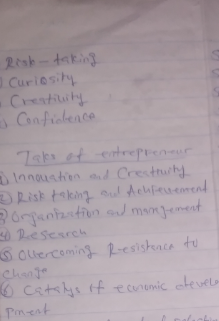 Risk-taking
Curiosity
Creativity
Confidence
Tasks of entrepreneur
① Innovation and Creativity
② Risk taking and Achievement
③ Organization and management
④ Research
⑤ Overcoming Resistance to
change
⑥ Catalys of economic develo
pment